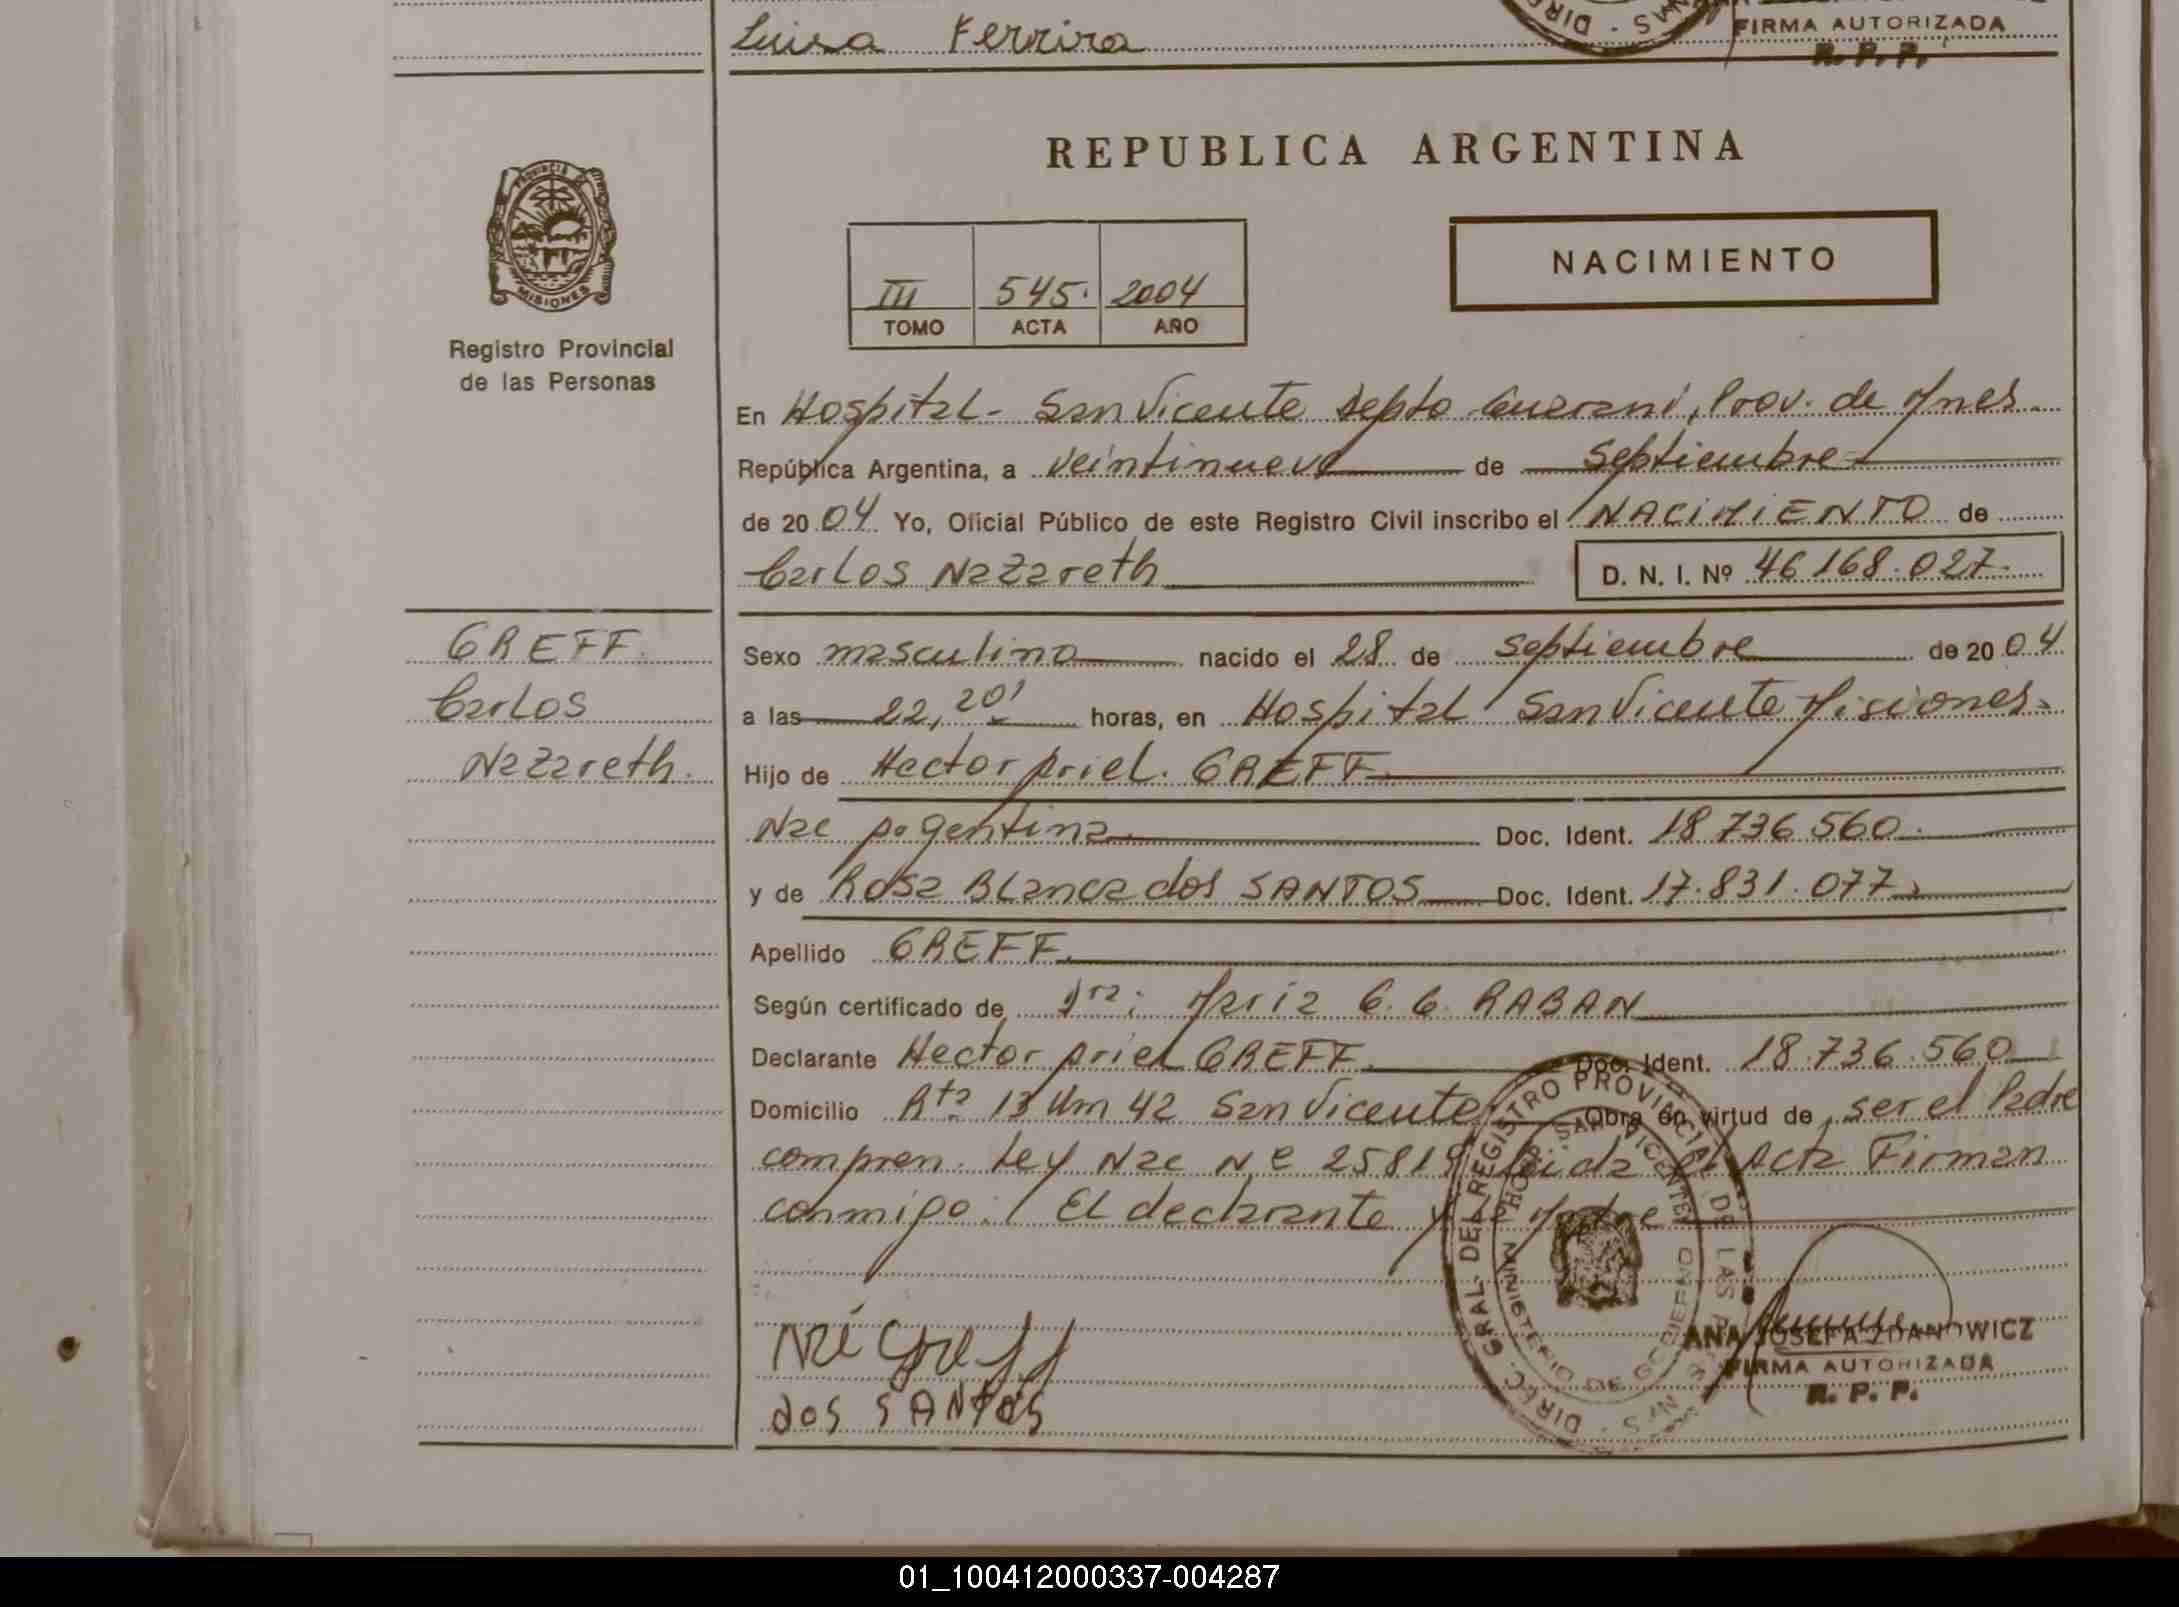 Luisa Ferrira
FIRMA AUTORIZADA
R. P. P.
REPUBLICA ARGENTINA
PROVINCIA DE
MISIONES
Registro Provincial
de las Personas
III 545. 2004
TOMO ACTA AÑO
NACIMIENTO
En Hospital- San Vicente Depto Guarani, Prov. de Mnes.
República Argentina, a veintinueve de septiembre
de 20 04 Yo, Oficial Público de este Registro Civil inscribo el NACIMIENTO de
Carlos Nazareth D. N. I. Nº 46.168.027.
GREFF.
Carlos
Nazareth.
Sexo masculino nacido el 28 de septiembre de 20 04
a las 22,20' horas, en Hospital San Vicente Misiones.
Hijo de Hector Ariel. GREFF
Nac Argentina. Doc. Ident. 18.736.560.
y de Rosa Blanca dos SANTOS Doc. Ident. 17.831.077
Apellido GREFF.
Según certificado de Dra: Maria G. G. RABAN
Declarante Hector Ariel GREFF Doc. Ident. 18.736.560
Domicilio Rta 13 Km 42 San Vicente Obra en virtud de ser el Padre
compren. Ley Nac Nº 25819 Leida el Acta Firman
conmigo: El declarante y la Madre
DIREC. GRAL. DEL REGISTRO PROVINCIAL DE LAS PERSONAS
MINISTERIO DE GOBIERNO
HOSP. SAN VICENTE
Greff
dos SANTOS
ANA JOSEFA ZDANOWICZ
FIRMA AUTORIZADA
R. P. P.
01_100412000337-004287